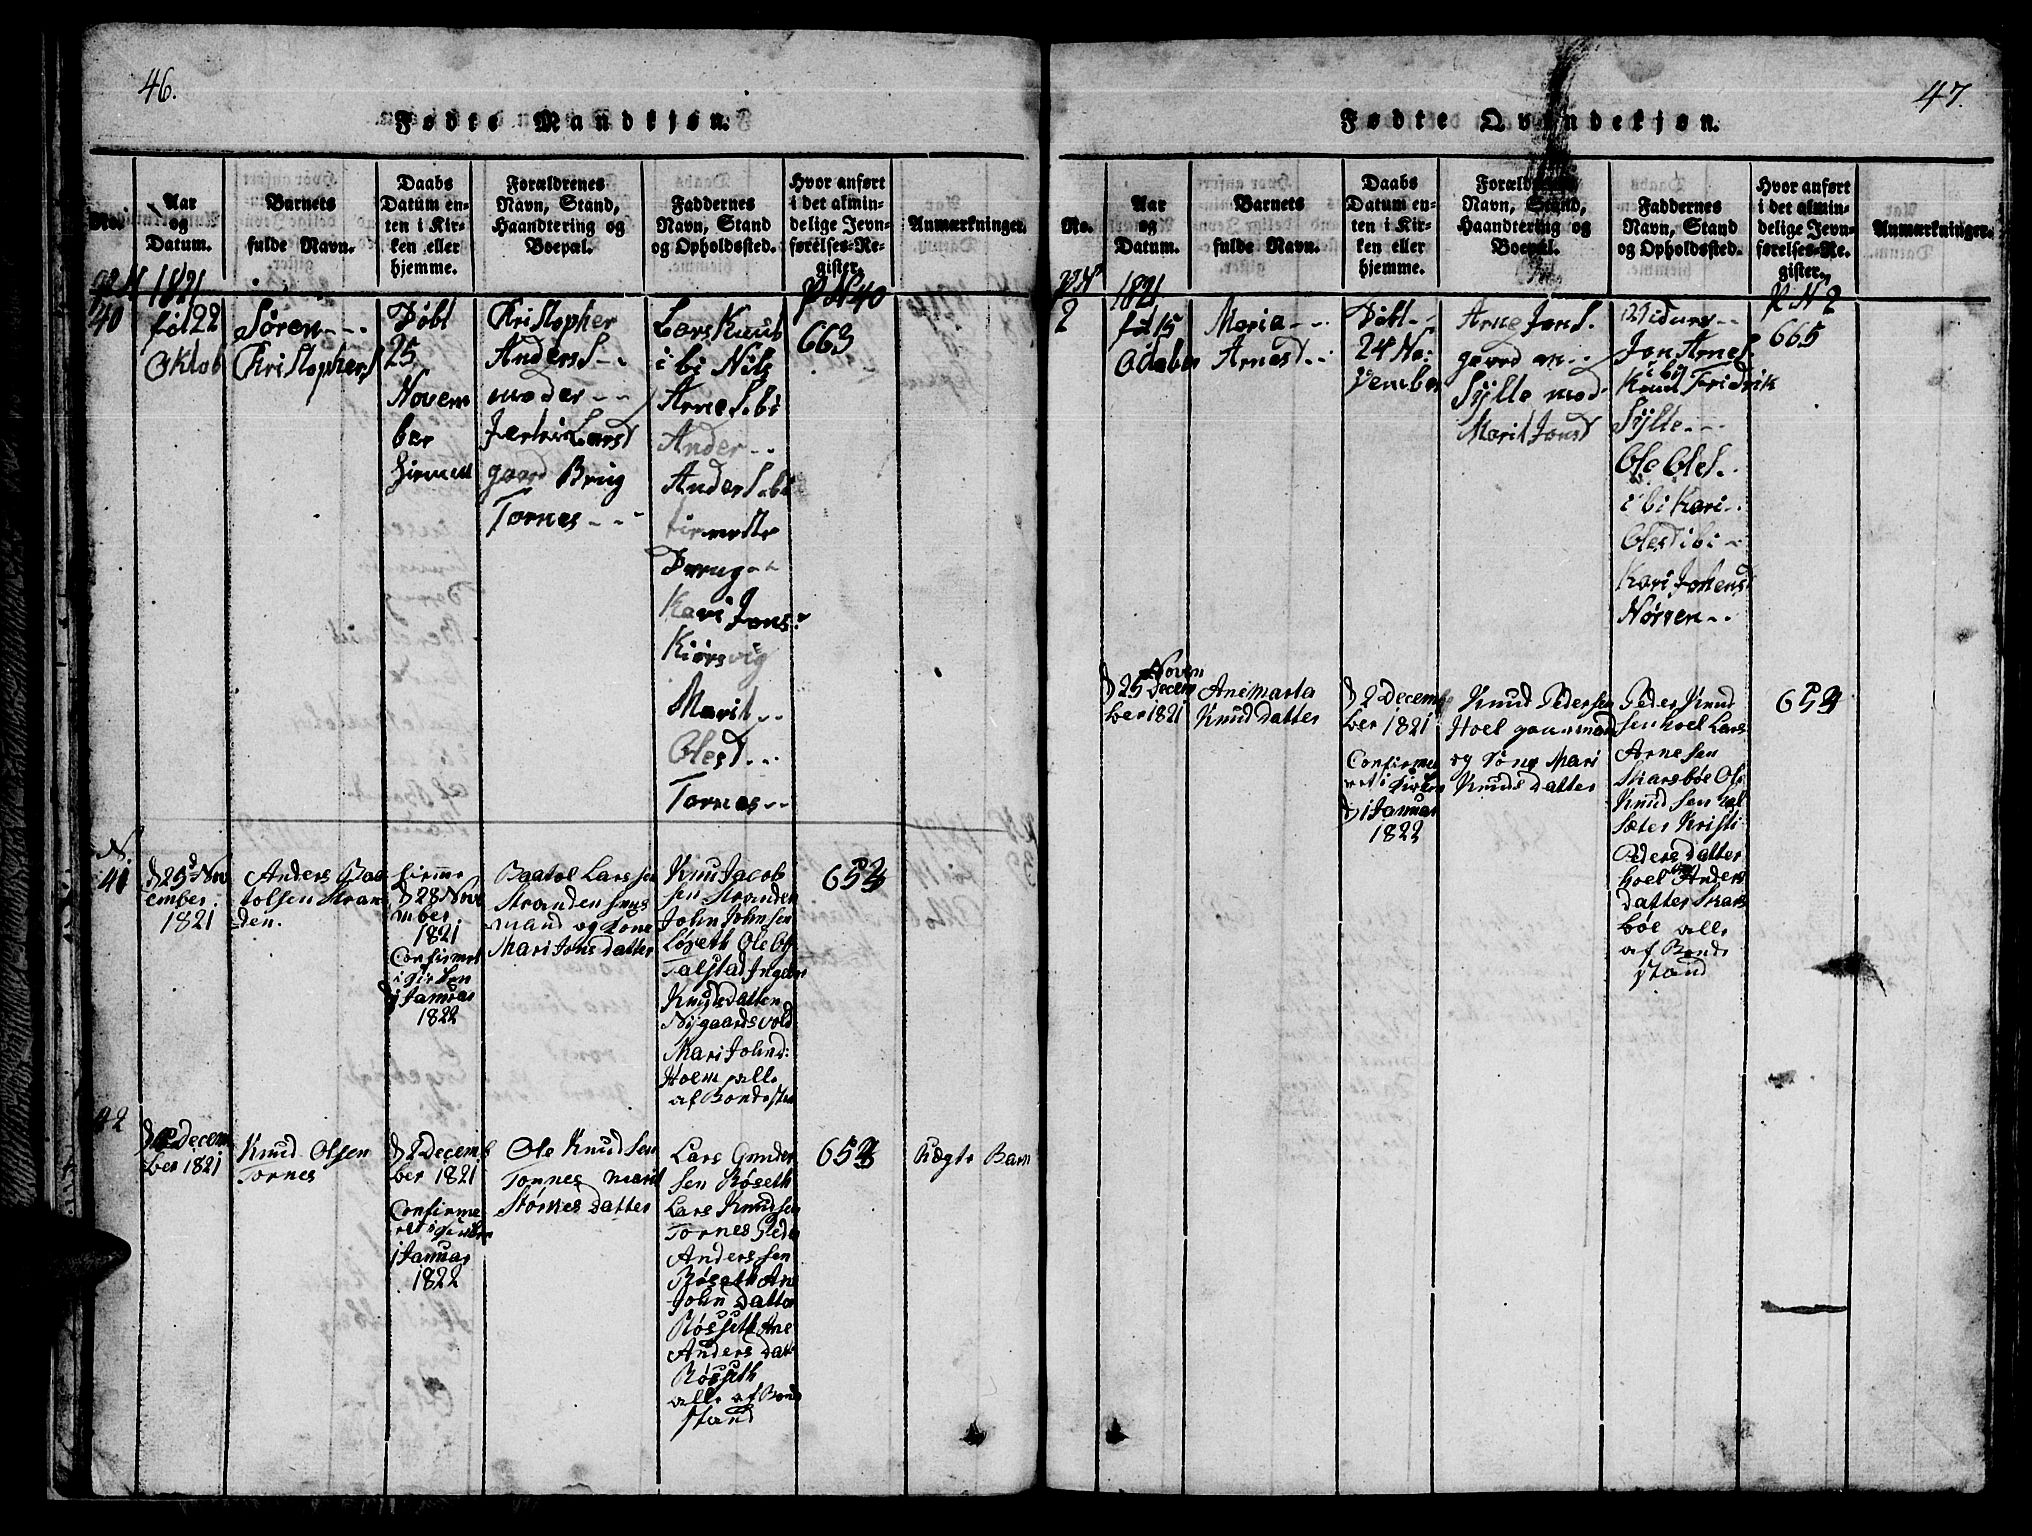 46.
Fødte Mandkjøn.
No.
Aar
og
Datum.
Barnets
fulde Navn.
Daabs
Datum en-
ten i Kir-
ken eller
hjemme.
Forældrenes
Navn, Stand,
Haandtering og
Boepæl.
Faddernes
Navn, Stand
og Opholdssted.
Hvor anført
i det almin-
delige Jevn-
førelses-Re-
gister.
Anmærkninger.
1821
P N 40
40
föd 22
Oktob
Sören
Kristophers
Döbt
25
Novem
ber
Kristopher
Anders
moder
Larsd
gaard Brug
Tornes
Lars Knud
i bi Nils
Arnes. bi
Ander
Anders. bi
Kari Jons
Kiörsvig
Marit
Olesd
Tornes
663
N.
41
d 25 Nov
ember
1821
Anders Baa
tolsen Stran
den.
d 28 Nov
mber
1821
Confirmet
i Kirken
Januar
1822
Baatol Larsen
Stranden huus
mand og Kone
Mari Jons datter
Knu Jacob
sen Stranden
John Johnsen
Løseth Ole Ol
Talstad Ingebor
Knudsdatter
Nygaardsvold
Mari Johnd:
Holm alle
af Bondestan
42
Decem
ber 1821
Knud Olsen
Tornes
d 2 Decemb
ber 1821
Confirme
ret i Kirken
Januar
1822
Ole Knudsen
Tornes Marit
datter
Lars Gunder
sen Røseth
Lars Knudsen
Tornes Peder
Anderssen
Røseth Ane
John datter
Røsseth Ane
Anders dat
Røsseth
alle af Bond
stand
Ægte Barn
47.
Fødte Qvindekjøn.
No.
Aar
og
Datum.
Barnets
fulde Navn.
Daabs
Datum en-
ten i Kir-
ken eller
hjemme.
Forældrenes
Navn, Stand,
Haandtering og
Boepæl.
Faddernes
Navn, Stand
og Opholdssted.
Hvor anført
i det almin-
delige Jevn-
førelses-Re-
gister.
Anmærkninger.
1821
P N 2
2
föd 15
Octeber
Maria
Arnesd
Döbt
24 No:
vember
Arne Jons.
gaard m
Sÿlte mod
Marit Jonsd
Jon Arnes
Knud Fridrik
Sÿlte
Ole Oles
i bi Kari
Olesd i bi
Kari Johensd
Nörven
665
Novem
d 25 Decem
ber 1821
Ane Marta
Knud datter
d 2 Decemb
ber 1821
Confirme
ret i Kirken
Januar
1822
Knud Pedersen
Hoel gaarmand
og Kone Mari
Knuds datter
Peder Knud
sen hoel Lars
Arnesen
Skarsbøe Ole
Knudsen
Sæter Kristi
Peders datter
hoel Anders
datter Skars
bøe alle
af Bonde
stand